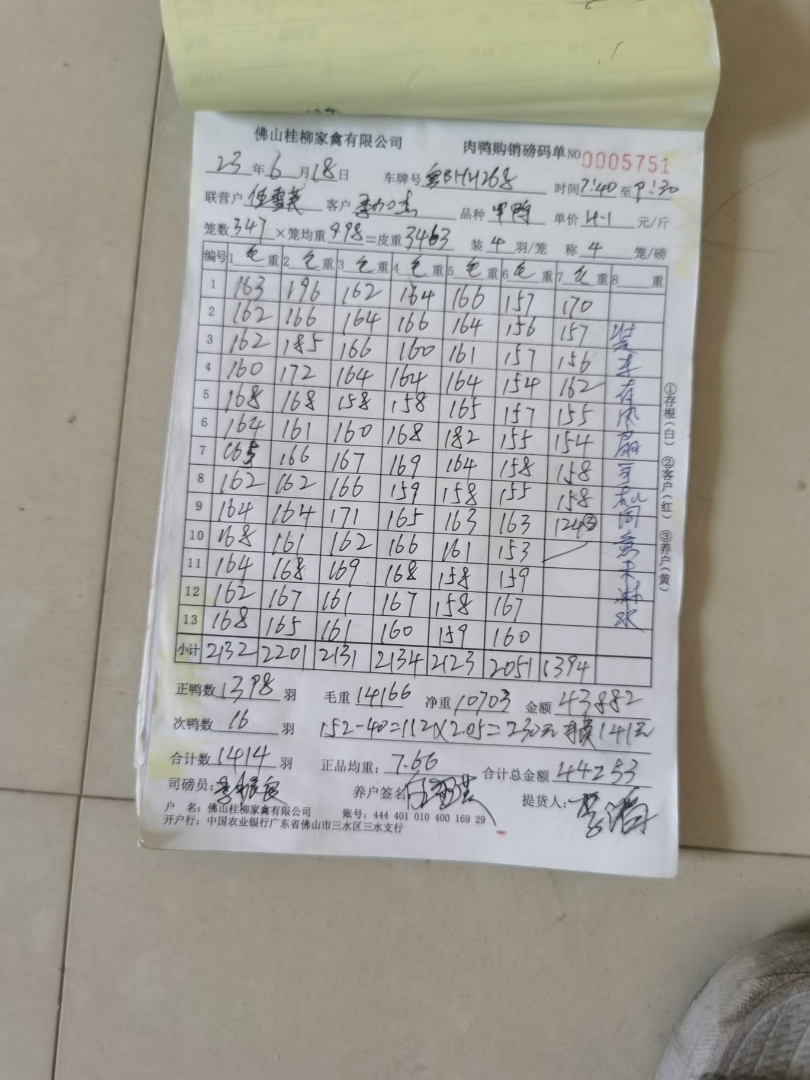 佛山桂柳家禽有限公司 肉鸭购销磅码单 NO 0005751
23年6月18日 车牌号 时间7:40至9:30
联营户 客户 品种 单价4.1元/斤
笼数347×笼均重9.98=皮重3463 装4羽/笼 称4笼/磅
编号 1毛重 2毛重 3毛重 4毛重 5毛重 6毛重 7毛重 8 重
1 163 196 162 164 166 157 170
2 162 166 164 166 164 156 157
3 162 185 166 160 161 157 156
4 160 172 164 164 164 154 162
5 168 168 158 158 165 157 155
6 164 161 160 168 182 155 154
7 165 166 167 169 164 158 158
8 162 162 166 159 158 155 158
9 164 164 171 165 163 163 124③
10 168 161 162 166 161 153
11 164 168 169 168 158 159
12 162 167 161 167 158 167
13 168 165 161 160 159 160
小计 2132 2201 2131 2134 2123 2051 1394
装车有风扇司机同意不淋水
①存根(白) ②客户(红) ③养户(黄)
正鸭数1398羽 毛重14166 净重10703 金额43882
次鸭数16羽 152-40=112×2.05=230元 141元
合计数1414羽 正品均重:7.66 合计总金额44253
司磅员: 养户签名 提货人:
户 名:佛山桂柳家禽有限公司 账号:444 401 010 400 169 29
开户行:中国农业银行广东省佛山市三水区三水支行